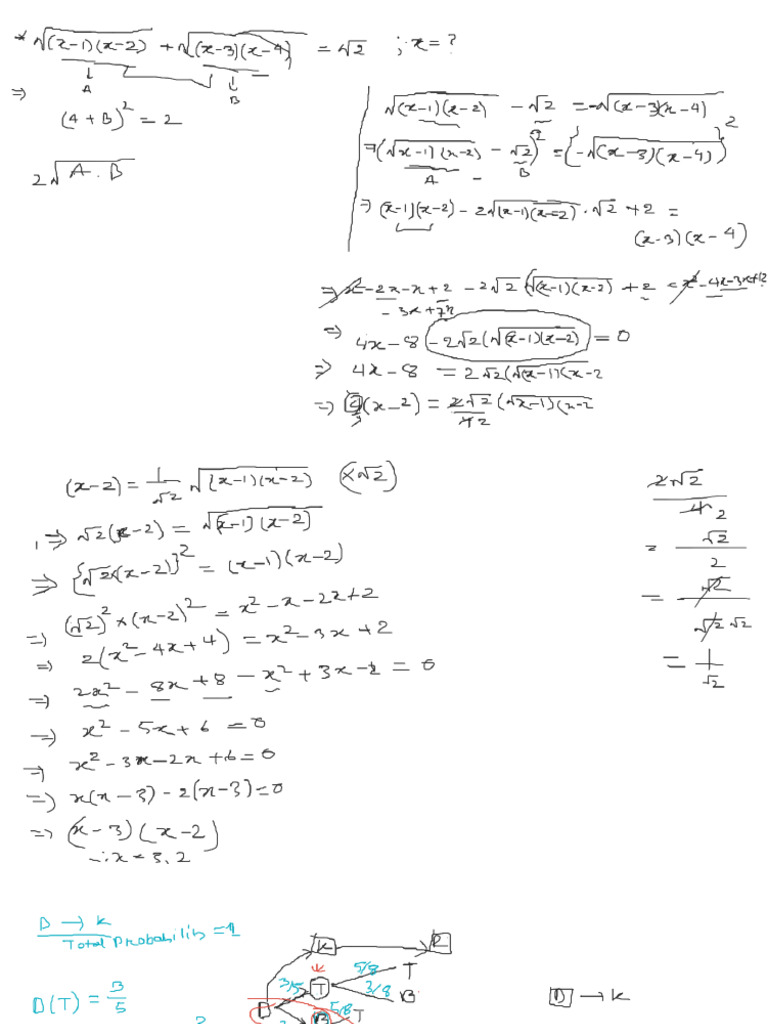 * √(x-1)(x-2) + √(x-3)(x-4) = √2 ; x = ?
A
B
⇒
(A+B)² = 2
2√A.B
√(x-1)(x-2) - √2 = -√(x-3)(x-4)
⇒ (√(x-1)(x-2) - √2)² = {-√(x-3)(x-4)}²
A
B
⇒ (x-1)(x-2) - 2√(x-1)(x-2) . √2 + 2 =
(x-3)(x-4)
⇒ x² - 2x - x + 2 - 2√2 (√(x-1)(x-2) + 2 = x² - 4x - 3x + 12
- 3x + 7x
⇒ 4x - 8 - 2√2 (√(x-1)(x-2) = 0
⇒ 4x - 8 = 2√2 (√(x-1)(x-2
⇒ 4(x-2) = 2√2 (√x-1)(x-2
4 2
(x-2) = 1/√2 √(x-1)(x-2) (×√2)
⇒ √2(x-2) = √(x-1)(x-2)
⇒ {√2(x-2)}² = (x-1)(x-2)
⇒ (√2)² × (x-2)² = x² - x - 2x + 2
⇒ 2(x² - 4x + 4) = x² - 3x + 2
⇒ 2x² - 8x + 8 - x² + 3x - 2 = 0
⇒ x² - 5x + 6 = 0
⇒ x² - 3x - 2x + 6 = 0
⇒ x(x-3) - 2(x-3) = 0
⇒ (x-3)(x-2)
∴ x = 3, 2
2√2
4 2
= √2
2
= √2
√2 √2
= 1
√2
D → K
Total Probability = 1
D(T) = 3
5
K
R
3/5
T
5/8
T
3/8
B
D
B
5/8
T
D → K